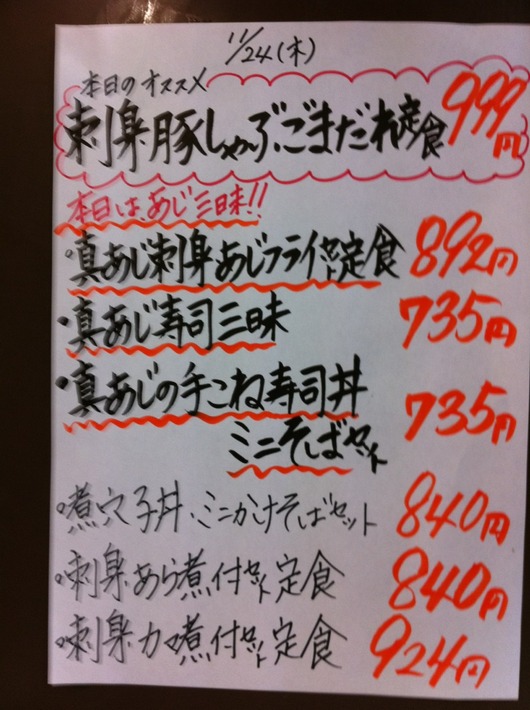 11/24(木)
本日のオススメ
刺身豚しゃぶごまだれ定食 999円
本日は、あじ三昧!!
・真あじ刺身あじフライセット定食 892円
・真あじ寿司三昧 735円
・真あじの手こね寿司丼
ミニそばセット 735円
・煮穴子丼・ミニかけそばセット 840円
・刺身あら煮付セット定食 840円
・刺身カマ煮付セット定食 924円